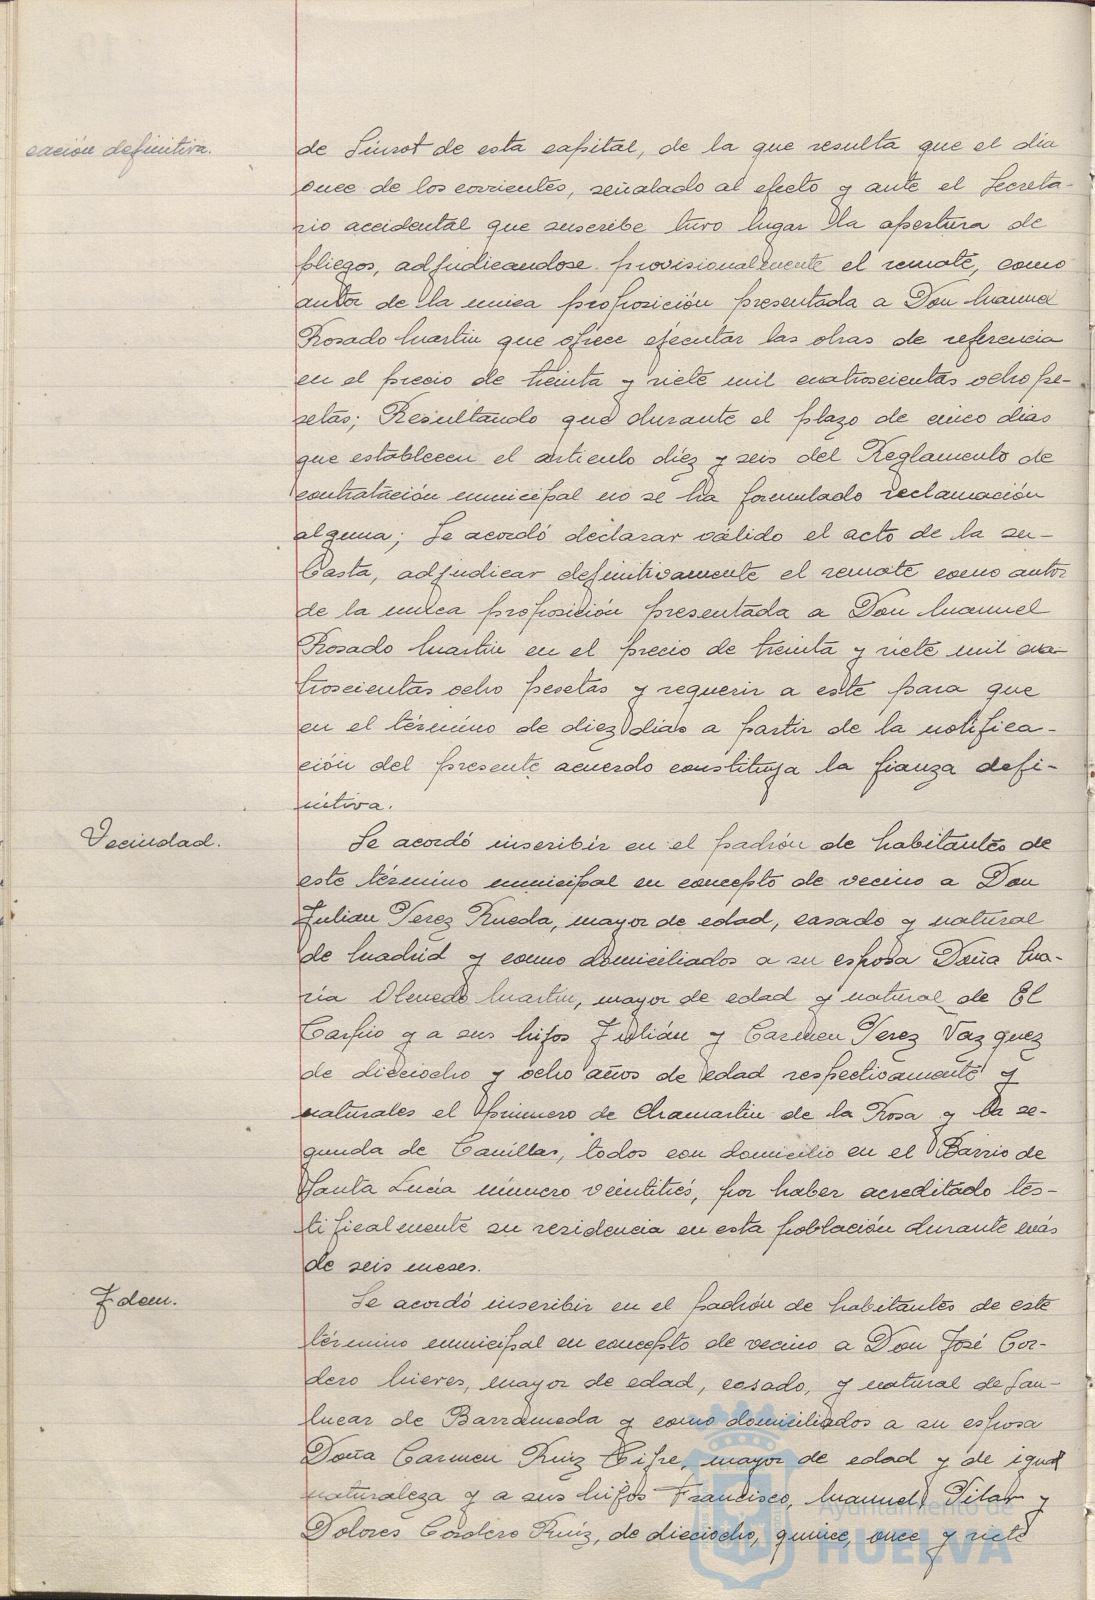 cación definitiva.
de Sinrot de esta capital, de la que resulta que el dia
once de los corrientes, señalado al efecto y ante el Secreta-
rio accidental que suscribe tuvo lugar la apertura de
pliegos, adjudicandose provisionalmente el remate, como
autor de la unica proposición presentada a Don Manuel
Rosado Martin que ofrece ejecutar las obras de referencia
en el precio de treinta y siete mil cuatroscientas ocho pe-
setas; Resultando que durante el plazo de cinco dias
que establecen el articulo diez y seis del Reglamento de
contratación municipal no se ha formulado reclamación
alguna; Se acordó declarar válido el acto de la su-
basta, adjudicar definitivamente el remate como autor
de la unica proposición presentada a Don Manuel
Rosado Martin en el precio de treinta y siete mil cua-
troscientas ocho pesetas y requerir a este para que
en el término de diez dias a partir de la notifica-
ción del presente acuerdo constituya la fianza defi-
nitiva.
Vecindad.
Se acordó inscribir en el padrón de habitantes de
este término municipal en concepto de vecino a Don
Julian Perez Rueda, mayor de edad, casado y natural
de Madrid y como domiciliados a su esposa Doña Ma-
ria Olmedo Martin, mayor de edad y natural de El
Carpio y a sus hijos Julián y Carmen Perez Vazquez
de dieciocho y ocho años de edad respectivamente y
naturales el primero de Chamartin de la Rosa y la se-
gunda de Canillas, todos con domicilio en el Barrio de
Santa Lucia número veintitrés, por haber acreditado tes-
tificalmente su residencia en esta población durante más
de seis meses.
Idem.
Se acordó inscribir en el padrón de habitantes de este
término municipal en concepto de vecino a Don José Cor-
dero Nieves, mayor de edad, casado, y natural de San-
lucar de Barrameda y como domiciliados a su esposa
Doña Carmen Ruiz Cifre, mayor de edad y de igual
naturaleza y a sus hijos Francisco, Manuel, Pilar y
Dolores Cordero Ruiz, de dieciocho, quince, once y siete
Ayuntamiento de
HUELVA